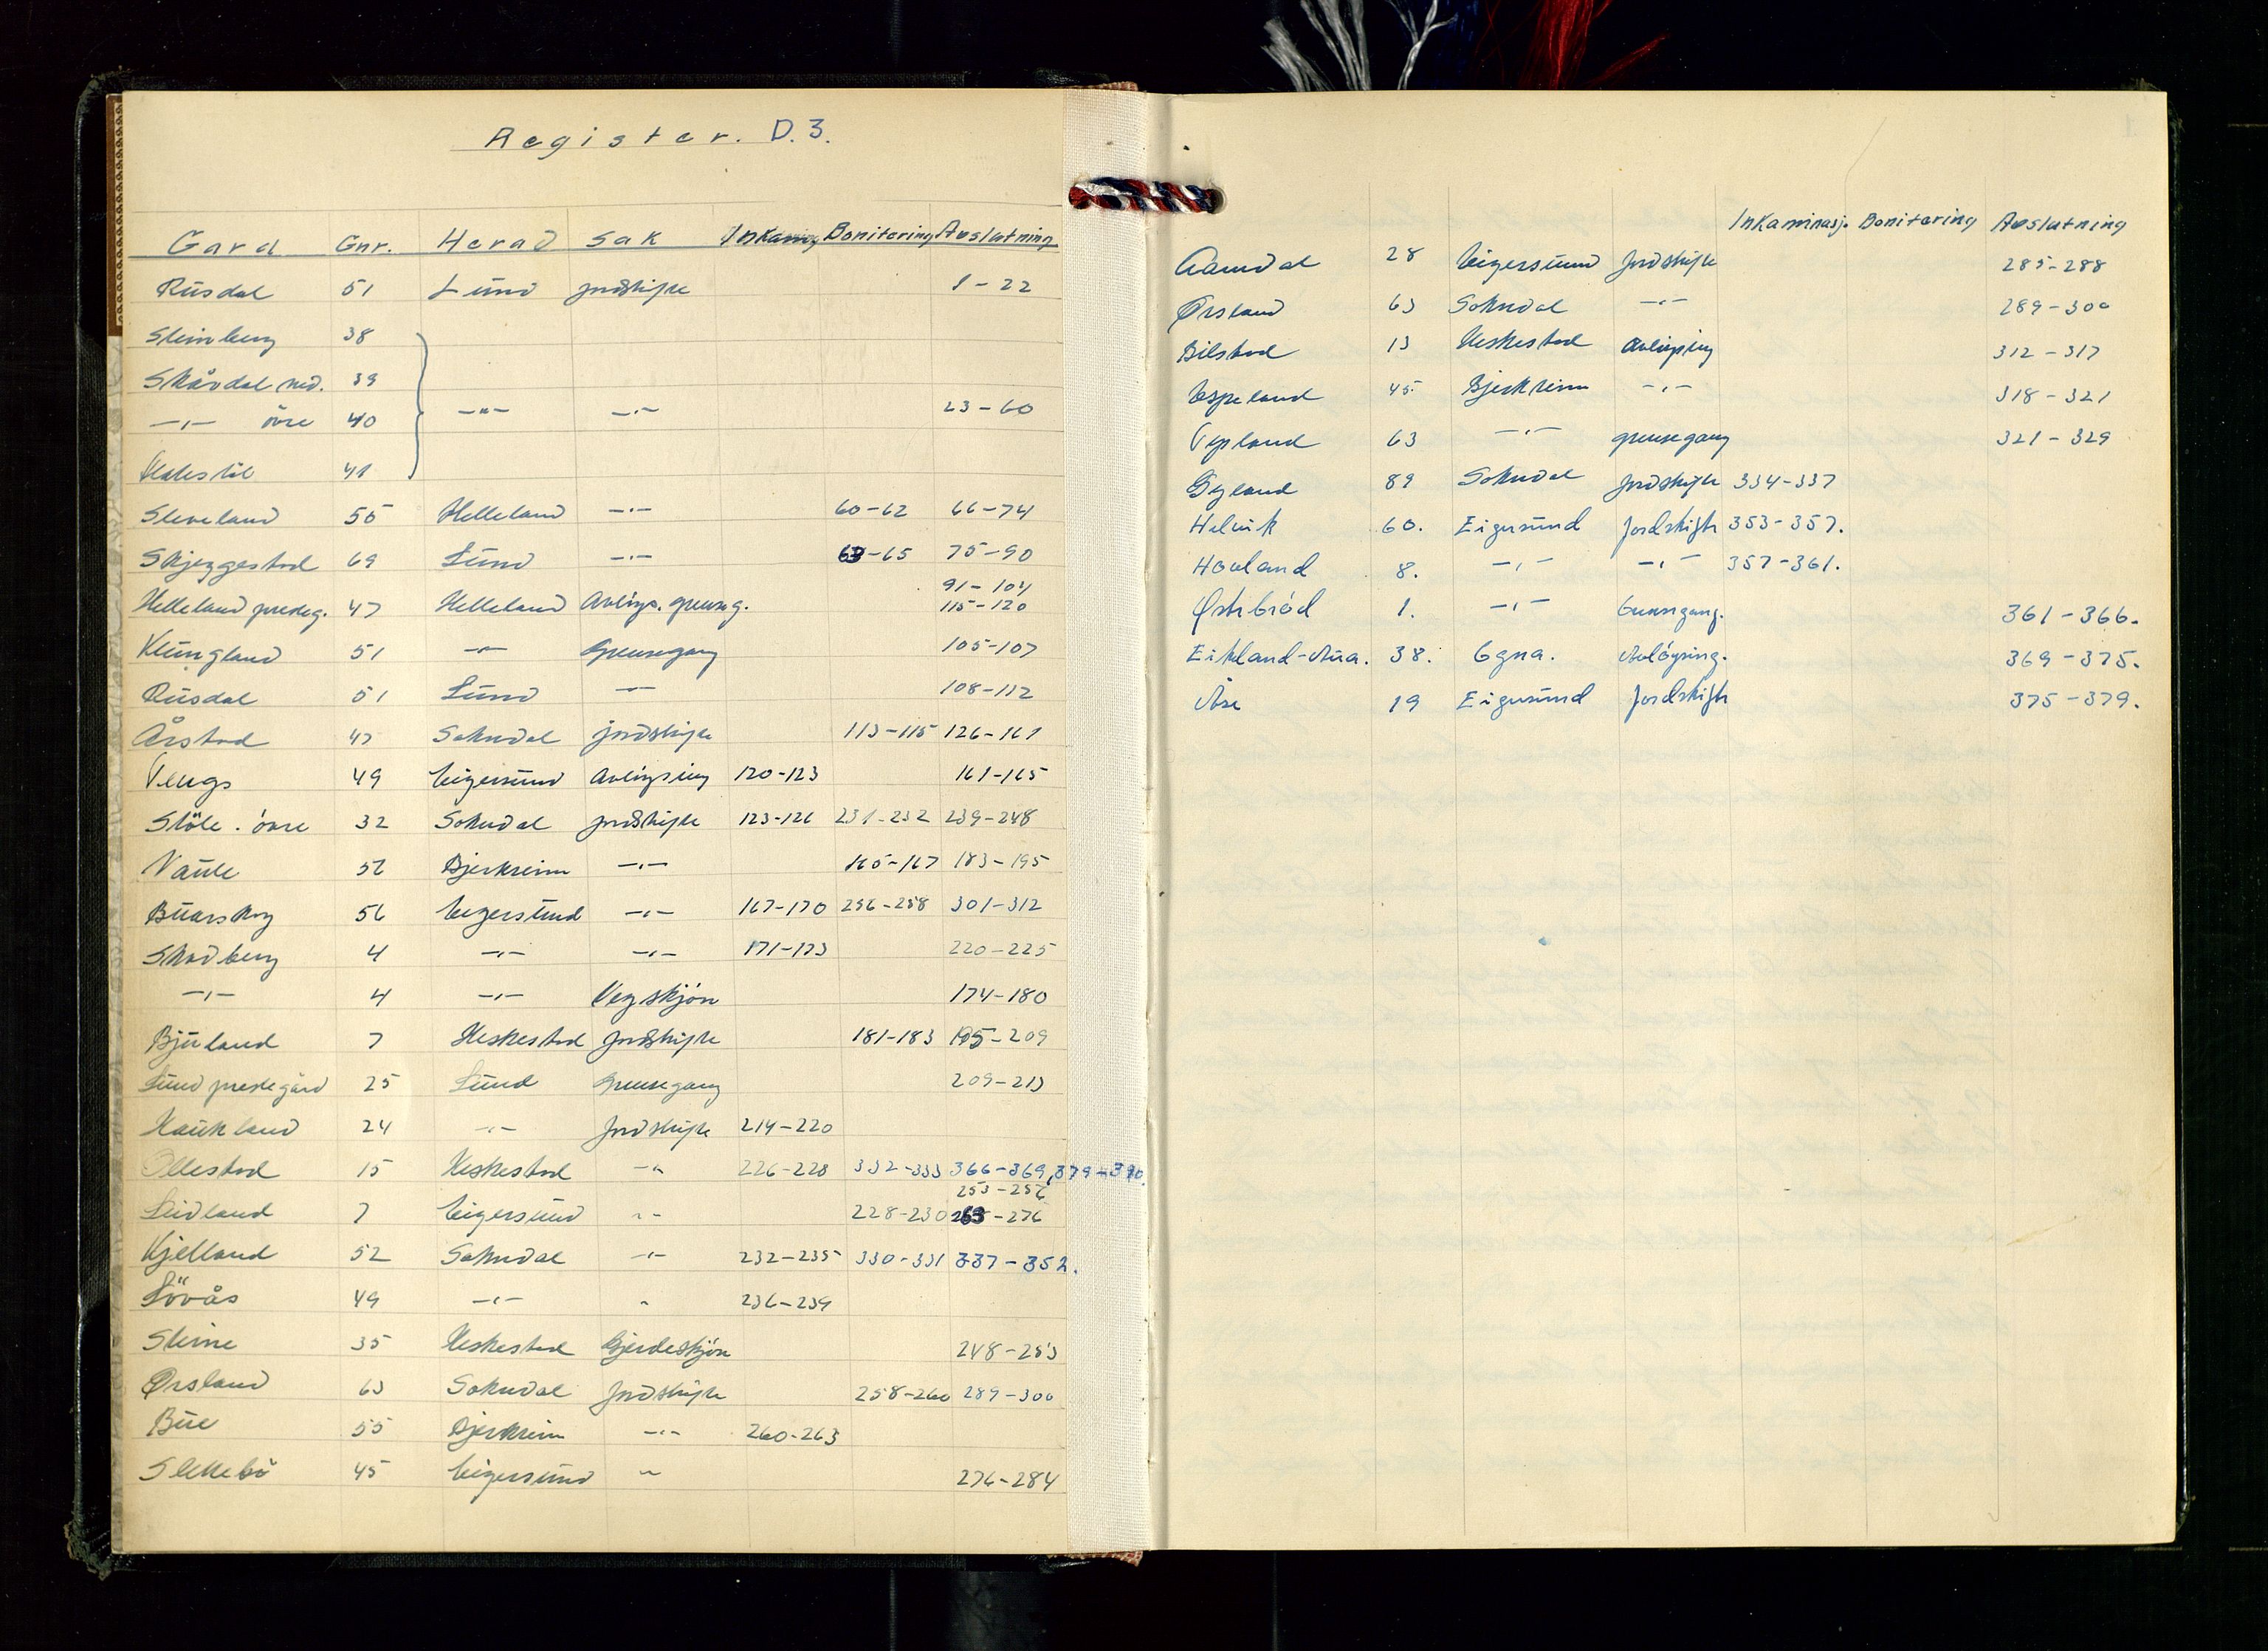 Register. D.3.
Gard Gnr. Herad Sak Inkaming Bonitering Avslutning
Rusdal 51 Lund jordskifte 1-22
Steinberg 38
Skåvdal ned. 39
-"- övre 40 -"- -"- 23-60
41
Sleveland 55 Helleland -"- 60-62 66-74
Skjeggestad 69 Lund -"- 63-65 75-90
91-104
Helleland presteg. 47 Helleland Avløys. grenseg. 115-120
Klungland 51 -"- Grensegang 105-107
Rusdal 51 Lund -"- 108-112
Årstad 47 Sokndal jordskifte 113-115 126-161
Tengs 49 Eigersund Avløysing 120-123 161-165
Stöle. övre 32 Sokndal jordskifte 123-126 231-232 239-248
Navle 52 Bjerkreim -"- 165-167 183-195
Buarskog 56 Eigersund -"- 167-170 256-258 301-312
Skadberg 4 -"- -"- 171-173 220-225
-"- 4 -"- Vegskjön 174-180
Bjuland 7 Heskestad Jordskifte 181-183 195-209
Lund prestegård 25 Lund Grensegang 209-213
Haukland 24 -"- Jordskifte 214-220
Ollestad 15 Heskestad -"- 226-228 332-333 366-369, 379-390.
253-256
Leidland 7 Eigersund -"- 228-230 263-276
Kjelland 52 Sokndal -"- 232-235 330-331 337-352.
Lövås 49 -"- " 236-239
Steine 35 Heskestad Gjerdeskjön 248-253
Ørsland 63 Sokndal Jordskifte 258-260 289-300
Bue 55 Bjerkreim -"- 260-263
Slettebö 45 Eigersund -"- 276-284
1
Inkaminasj. Bonitering Avslutning
Aamdal 28 Eigersund Jordskifte 285-288
Ørsland 63 Sokndal -"- 289-300
Bilstad 13 Heskestad Avløysing 312-317
Espeland 45 Bjerkreim -"- 318-321
63 -"- grensegang 321-329
Gyland 89 Sokndal Jordskifte 334-337
Helvik 60. Eigersund Jordskifte 353-357.
Hovland 8. -"- -"- 357-361.
Østebröd 1. -"- Grensegang. 361-366.
Eikland-Aua. 38. Ogna. Avlöysing. 369-375.
Åse 19 Eigersund Jordskifte 375-379.